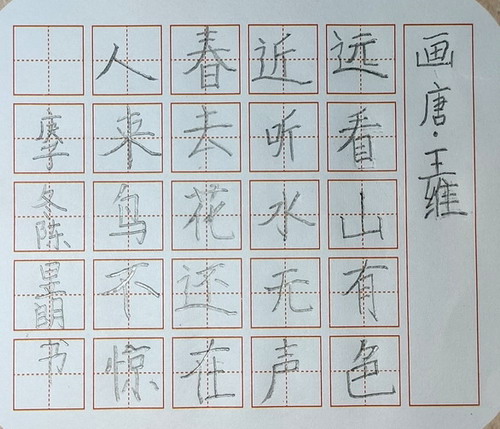 画唐·王维
远看山有色
近听水无声
春去花还在
人来鸟不惊
庚子冬陈书